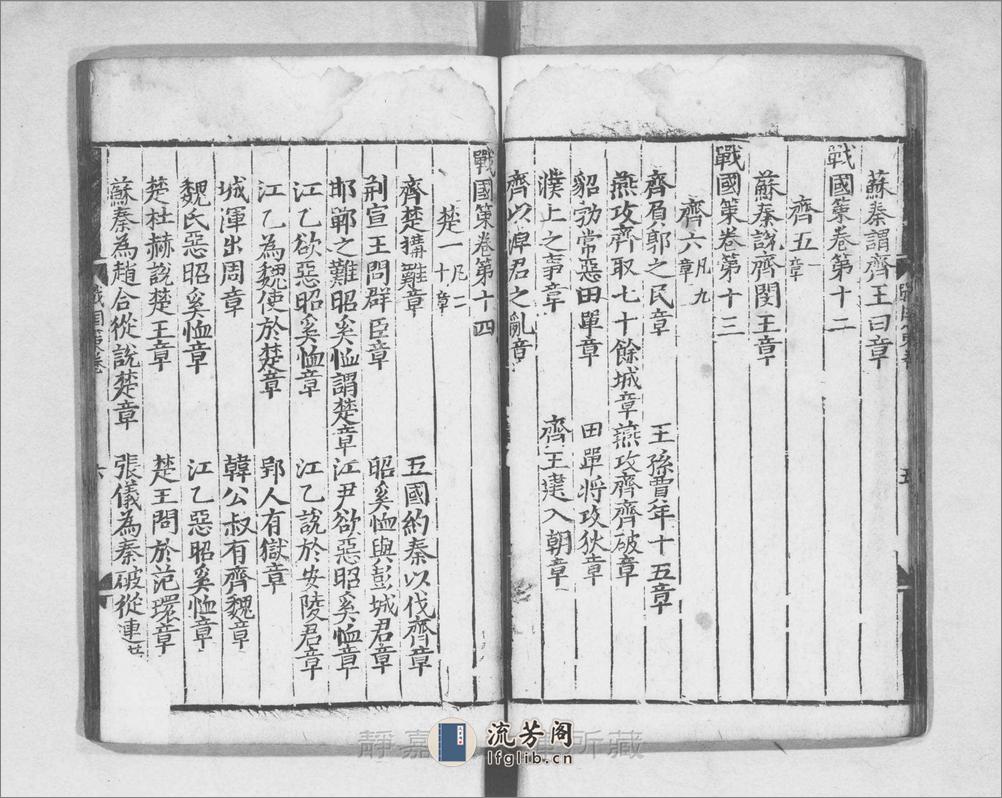 蘇秦謂齊王曰章
戰國策卷第十二
齊五一章
蘇秦說齊閔王章
戰國策卷第十三
齊六凡九章
齊負郭之民章 王孫賈年十五章
燕攻齊取七十餘城章 燕攻齊齊破章
貂勃常惡田單章 田單將攻狄章
濮上之事章 齊王建入朝章
齊以淖君之亂章
戰國策卷第十四
楚一凡二十章
齊楚構難章 五國約秦以伐齊章
荆宣王問群臣章 昭奚恤與彭城君章
邯鄲之難昭奚恤謂楚章 江尹欲惡昭奚恤章
江乙欲惡昭奚恤章 江乙說於安陵君章
江乙為魏使於楚章 郢人有獄章
城渾出周章 韓公叔有齊魏章
魏氏惡昭奚恤章 江乙惡昭奚恤章
楚杜赫說楚王章 楚王問於范環章
蘇秦為趙合從說楚章 張儀為秦破從連
五
六
靜嘉 所藏
流芳阁
lfglib.cn